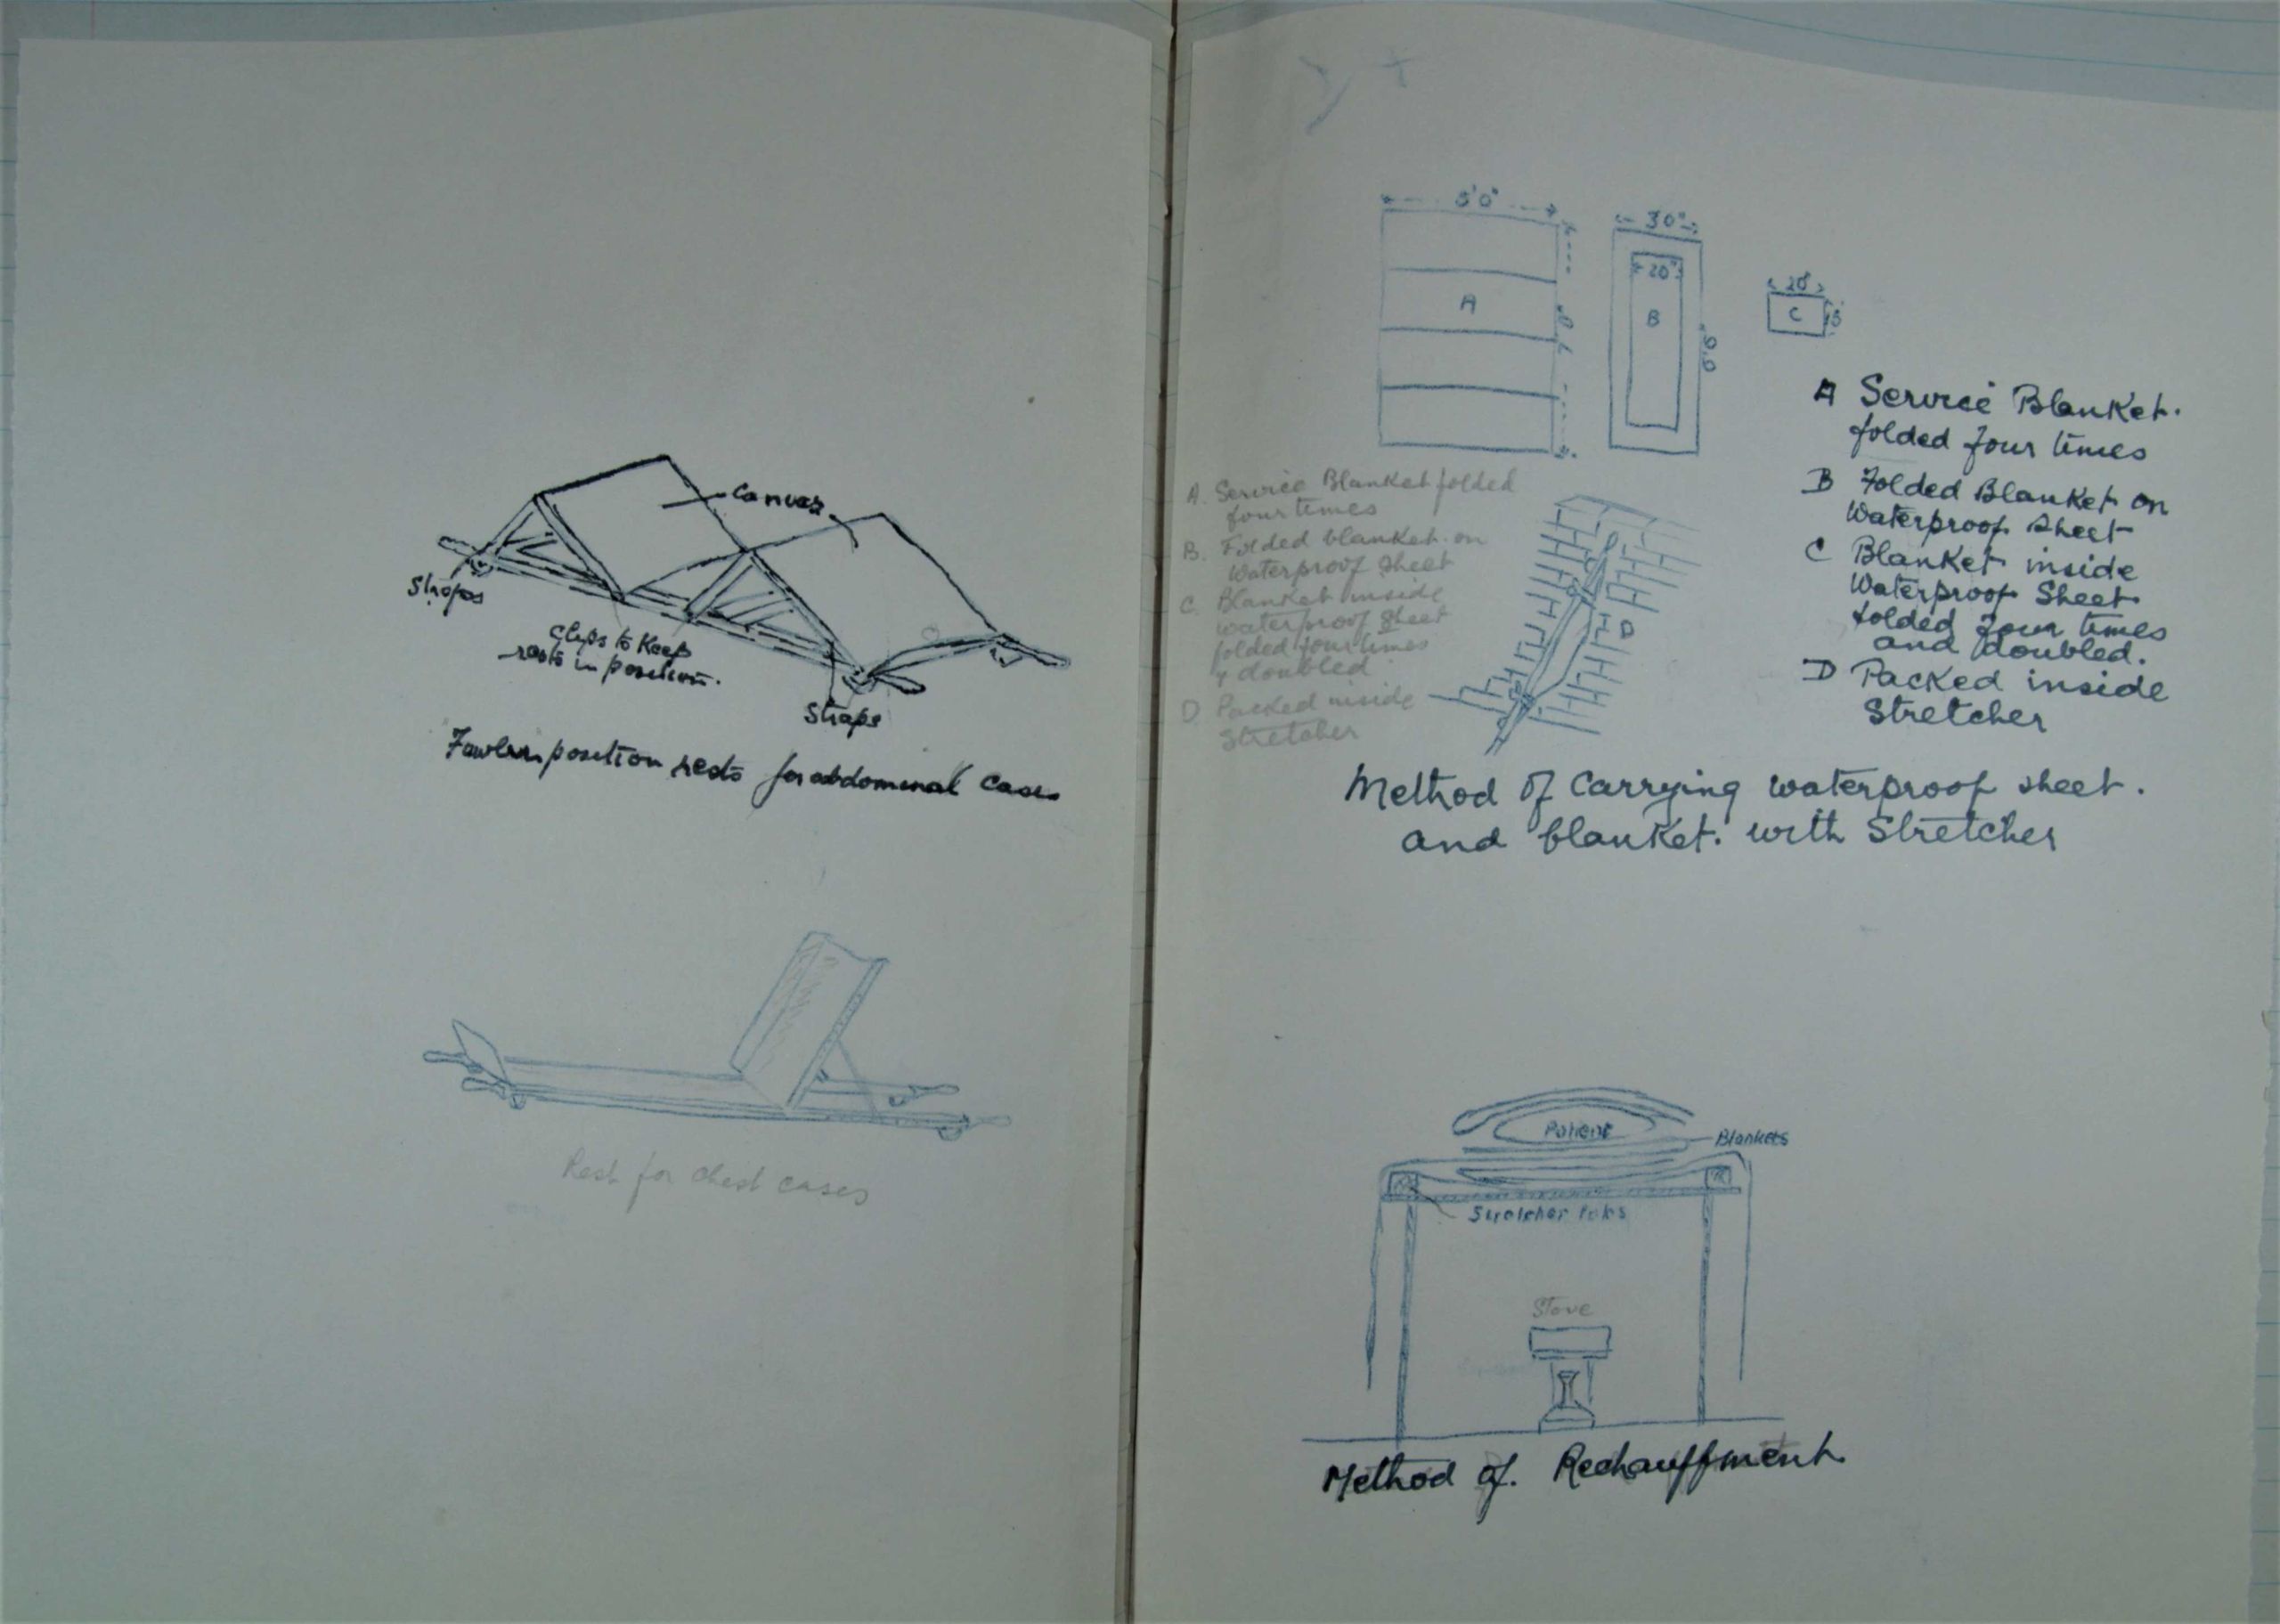 Canvas
Straps
Clips to Keep
rests in position.
Straps
Fowler position rests for abdominal Cases
Rest for chest cases
5'0"
30"
20"
20"
A
B
C
6'0"
A Service Blanket.
folded four times
B Folded Blanket on
Waterproof sheet
C Blanket inside
Waterproof Sheet
folded four times
and doubled.
D Packed inside
Stretcher
A. Service Blanket folded
four times
B. Folded blanket on
Waterproof sheet
C. Blanket inside
waterproof sheet
folded four times
& doubled
D Packed inside
Stretcher
D
Method of Carrying waterproof sheet.
and blanket. with Stretcher
Patient
Blankets
Stretcher Poles
Stove
Method of. Rechauffment